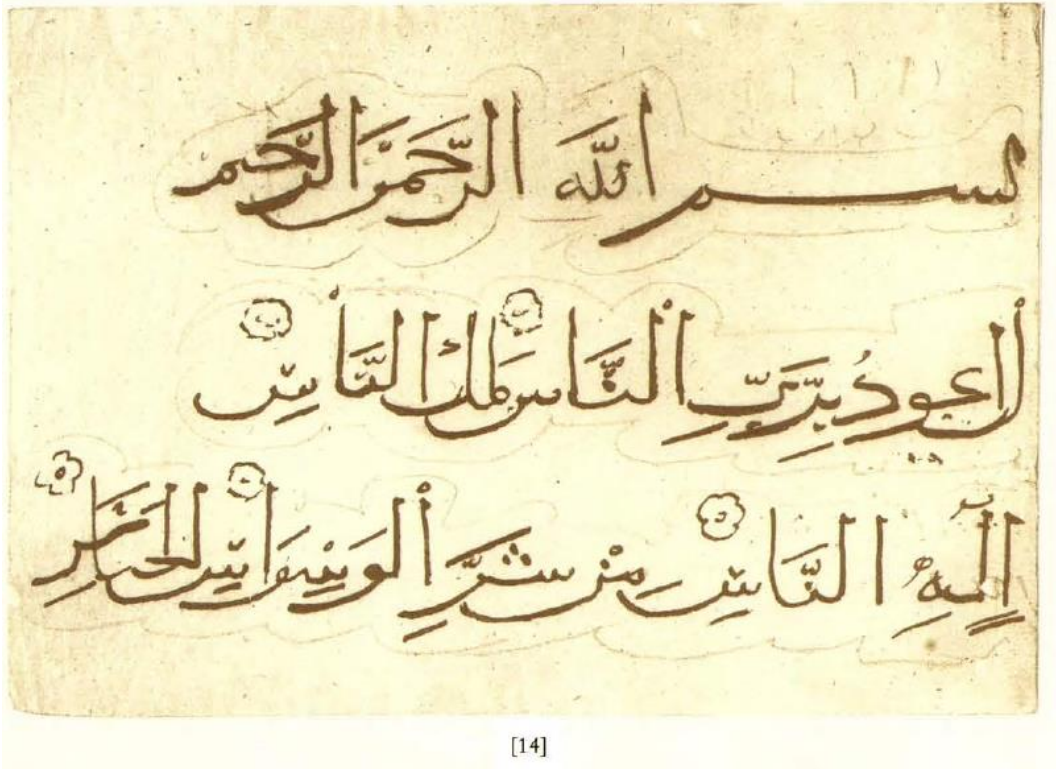 بسم اللَّه الرَّحْمَن الرَّحيم
ل اعودُ بِرَبِّ النَّاس مَلك النَّاسِ
إِلَهِ النَّاسِ مِنْ شَرِّ الْوَسْوَاسِ الخنَّاسِ
[14]